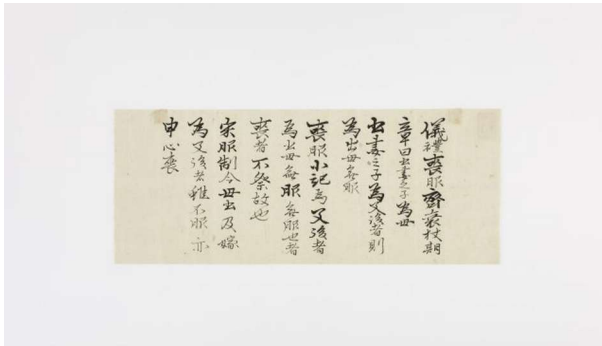 儀禮喪服齊衰杖期
章曰出妻之子為母
出妻之子為父後者則
為出母無服
喪服小記為父後者
為出母無服無服也者
喪者不祭故也
宋服制令母出及嫁
為父後者雖不服亦
申心喪